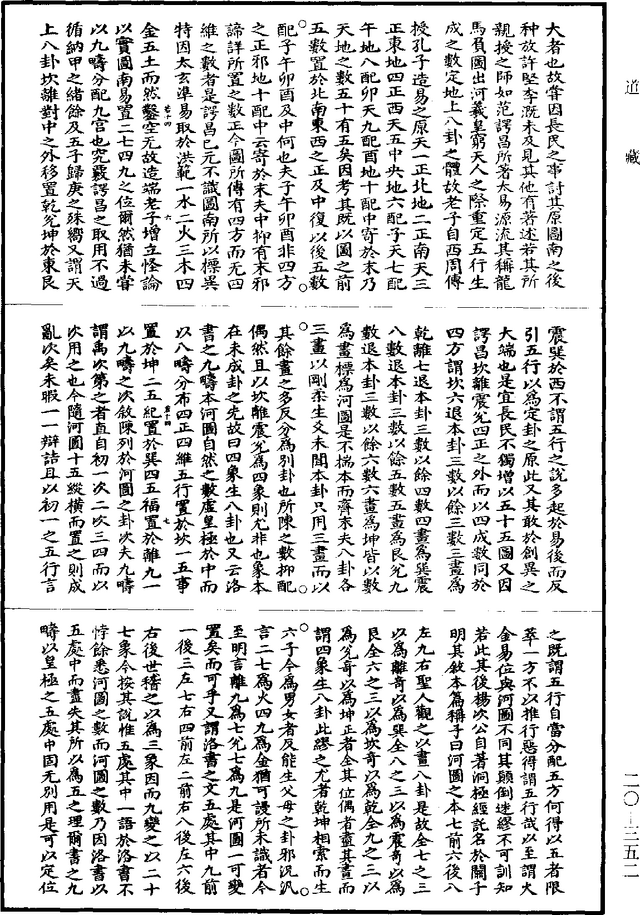 道藏
大者也故嘗因長民之事討其原圖南之後
种放許堅李溉未及見其他有著述若其所
親授之師如范諤昌所著大易源流其稱龍
馬負圖出河羲皇窮天人之際重定五行生
成之數定地上八卦之體故老子自西周傳
授孔子造易之原天一正北地二正南天三
正東地四正西天五中央地六配子天七配
午地八配卯天九配酉地十配中寄於末乃
天地之數五十有五矣因考其既以圖之前
五數置於北南東西之正及中復以後五數
配子午卯酉及中何也夫子午卯酉非四方
之正邪地十配中云寄於末夫中抑有末邪
諦詳所置之數正今圖所傳有四方而无四
維之數者是諤昌已元不識圖南所以標異
特因太玄準易取於洪範一水二火三木四
金五土而然鑿空无故造端老子增立怪論
以實圖南易置二七四九之位爾然猶未嘗
以九疇分配九宮也究竅諤昌之取用不過
循納甲之緒餘及五子歸庚之殊嚮又謂天
上八卦坎離對中之外移置乾兌坤於東艮
震巽於西不謂五行之說多起於易後而反
引五行以為定卦之原此又其敢於創異之
大端也是宜長民不獨增以五十五圖又因
諤昌坎離震兌四正之外而以四成數同於
四方謂坎六退本卦三數以餘三數三畫為
乾離七退本卦三數以餘四數四畫為巽震
八數退本卦三數以餘五數五畫為艮兌九
數退本卦三數以餘六數六畫為坤皆以數
為畫標為河圖是不揣本而齊末夫八卦各
三畫以剛柔生爻未聞本卦只用三畫而以
其餘畫之多反分為別卦也所陳之數抑配
偶然且以坎離震兌為四象則尤非也象本
在未成卦之先故曰四象生八卦也又云洛
書之九疇本河圖自然之數虛皇極於中而
以八疇分布四正四維五行置於坎一五事
置於坤二五紀置於巽四五福置於離九一
以九疇之次敘陳列於河圖之卦次夫九疇
謂禹次第之者直自初一次二次三四而以
次用之也今隨河圖十五縱橫而置之則成
亂次矣未暇一一辯詰且以初一之五行言
之既謂五行自當分配五方何得以五者限
萃一方不以推行惡得謂五行哉以至謂火
金易位與河圖不同其顛倒迷繆不可訓知
若此其後楊次公自著洞極經託名於關子
明其敘本篇稱子曰河圖之本七前六後八
左九右聖人觀之以畫八卦是故全七之三
以為離奇以為巽全八之三以為震奇以為
艮全六之三以為坎奇以為乾全九之三以
為兌奇以為坤正者全其位偶者盡其畫而
謂四象生八卦此繆之尤者乾坤相索而生
六子今為男女者反能生父母之卦邪況汎
言二七為火四九為金猶可謾所未識者今
至明言離九為七兌七為九是河圖一可變
置矣而可乎又謂洛書之文五處其中九前
一後三左七右四前左二前右八後左六後
右後世稽之以為三象因而九變之以二十
七象今按其說惟五處其中一語於洛書不
悖餘悉河圖之數而河圖之數乃因洛書以
五處中而盡失其所以為五之理爾書之九
疇以皇極之五處中因无別用是可以定位
二〇—三五二